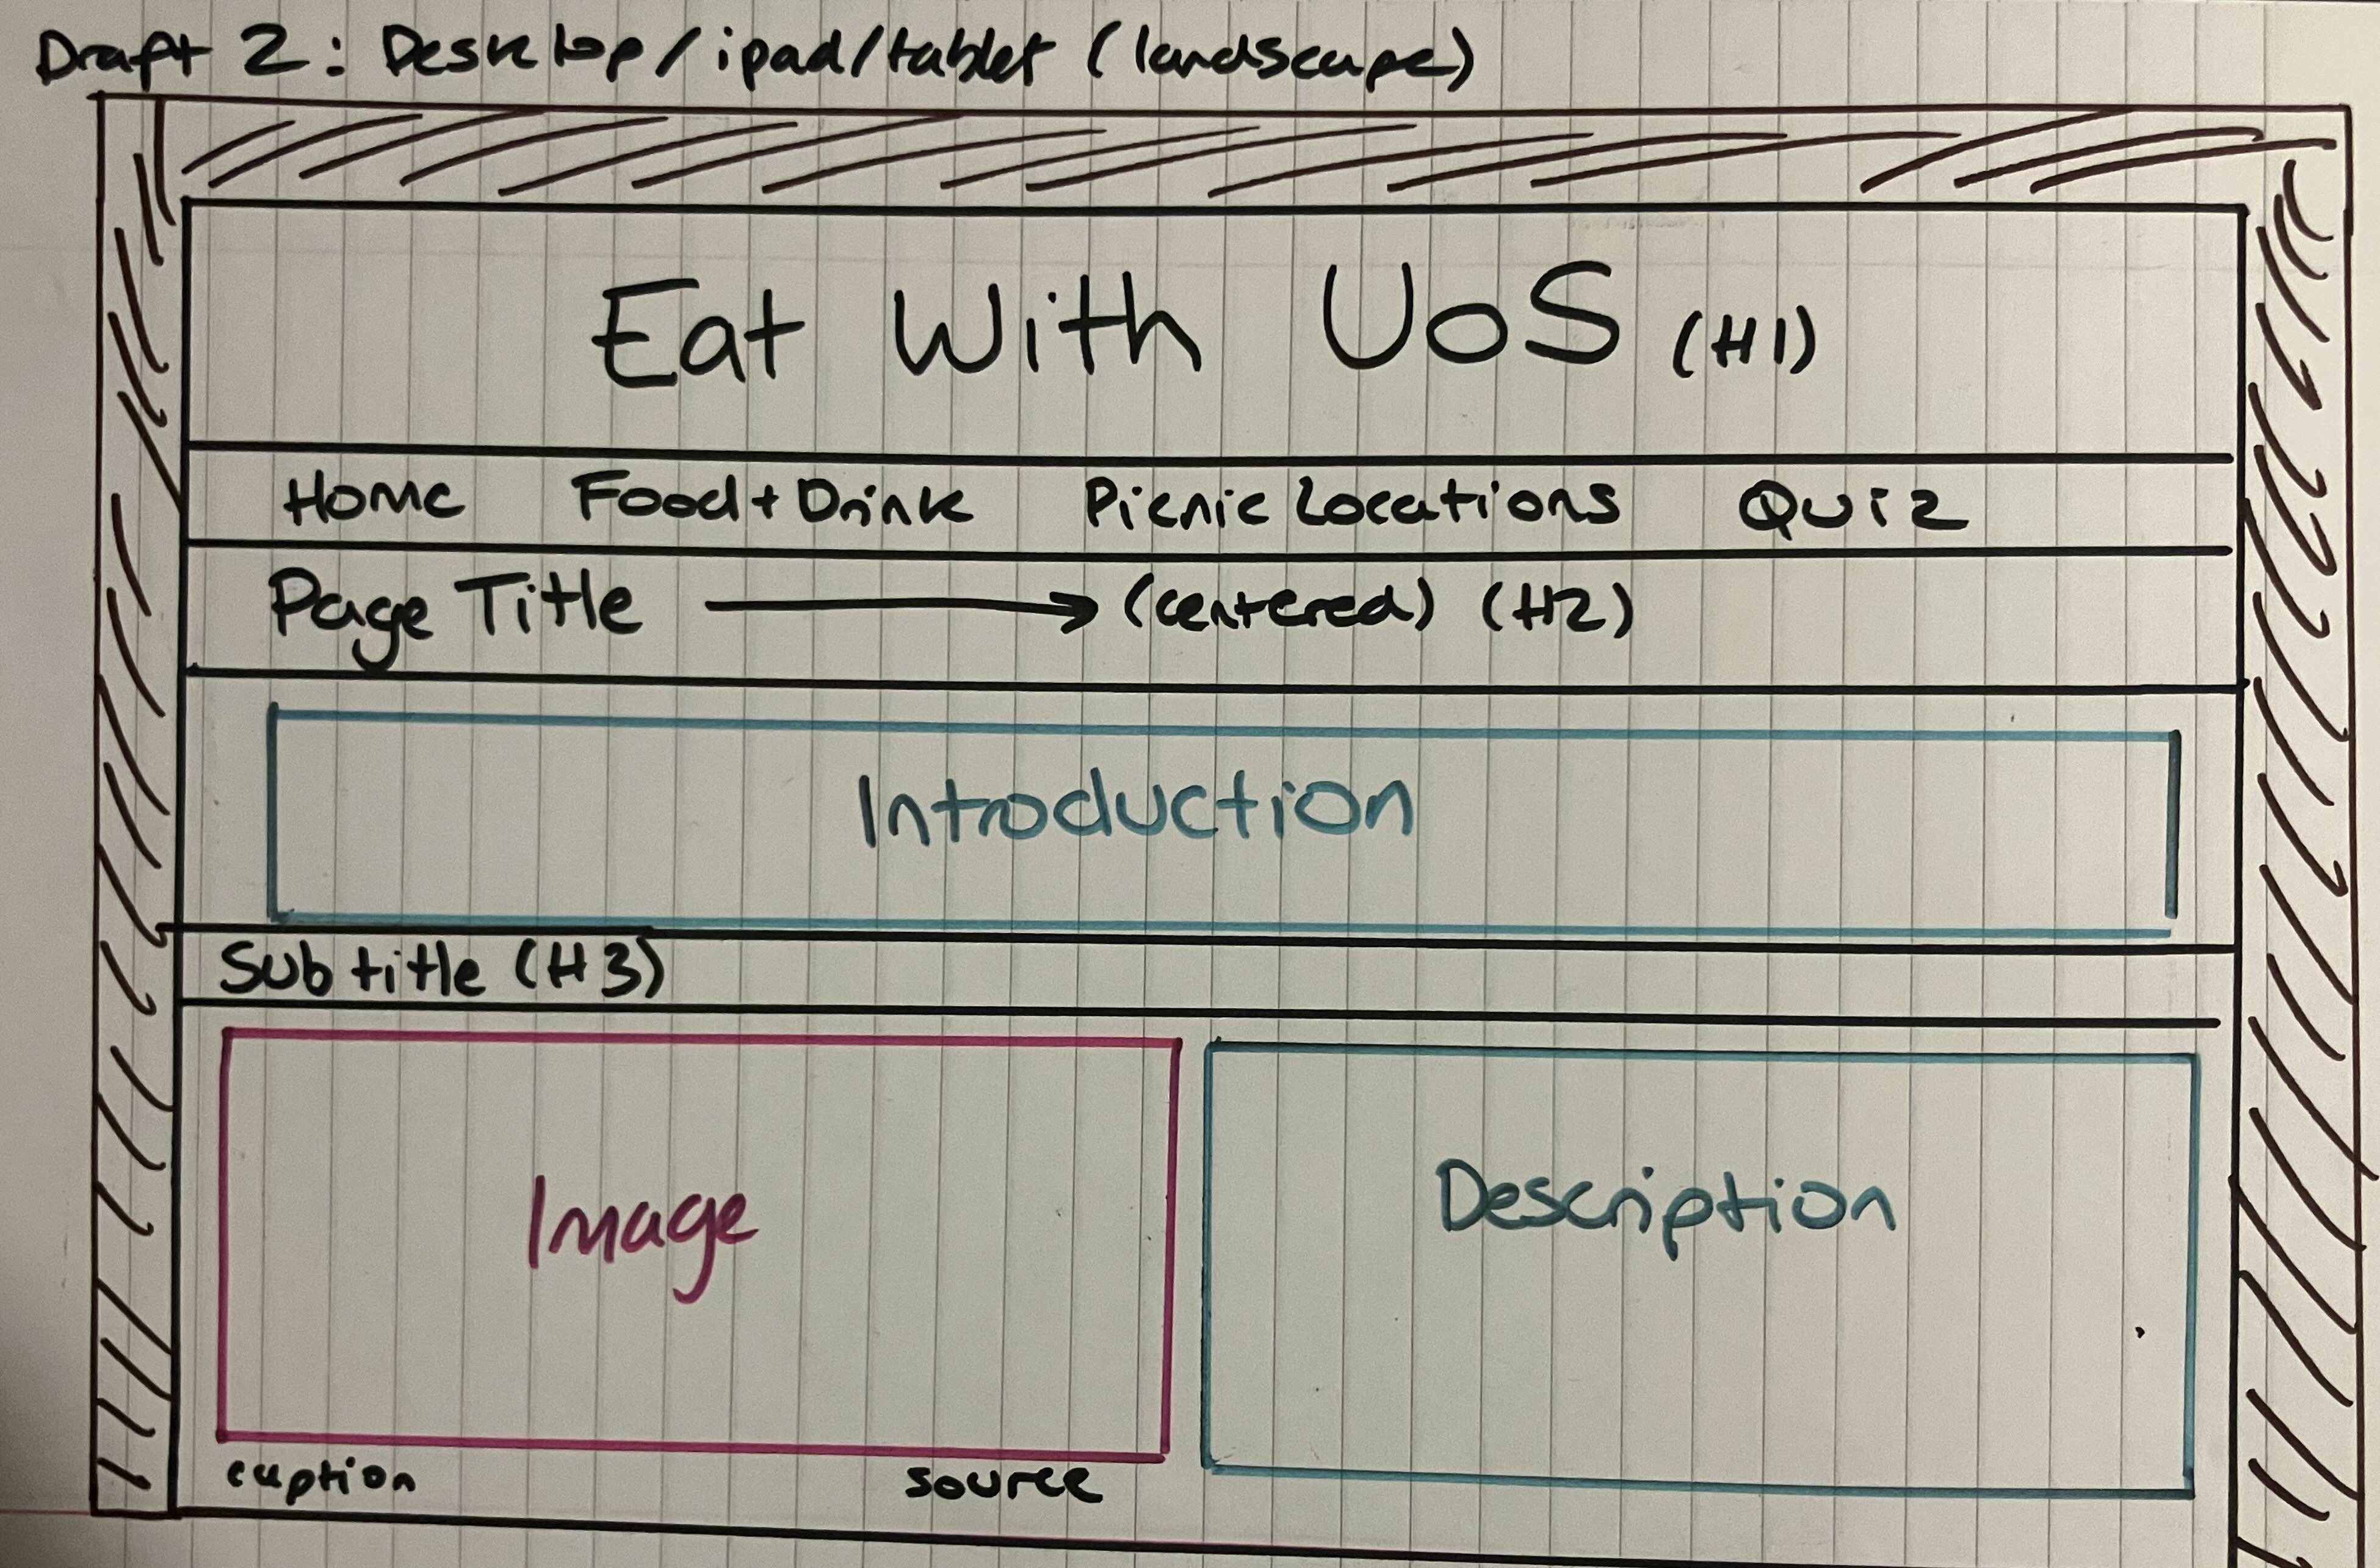 Draft 2: Desktop/ipad/tablet (landscape)
Eat With UoS (H1)
Home Food+Drink Picnic Locations Quiz
Page Title (centered) (H2)
Introduction
Subtitle (H3)
Image
Description
caption source